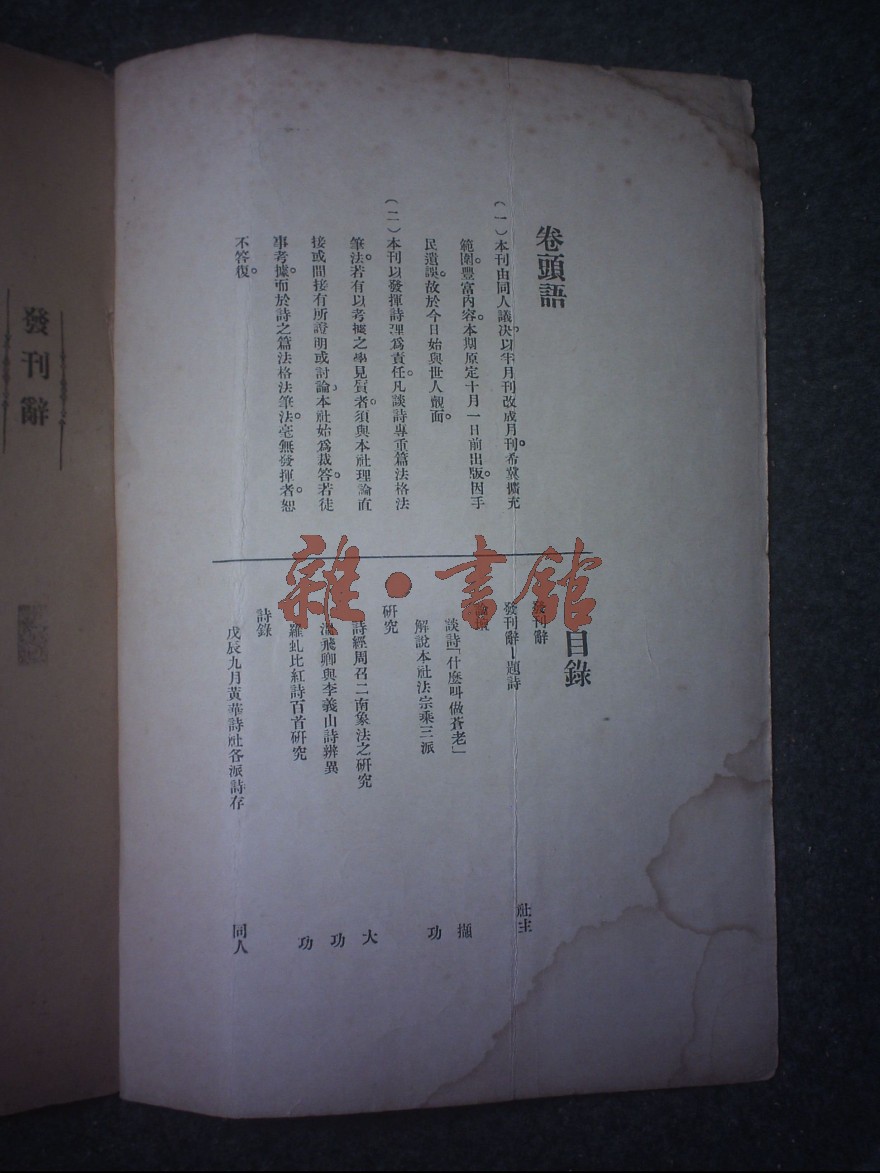 卷頭語
(一)本刊由同人議决,以年月刊改成月刊。希冀擴充
範圍。豐富內容。本期原定十月一日前出版。因手
民遺誤。故於今日始與世人覿面。
(二)本刊以發揮詩理為責任。凡談詩專重篇法格法
筆法。若有以考據之學見質者。須與本社理論直
接或間接有所證明或討論,本社始為裁答。若徒
事考據。而於詩之篇法格法筆法。毫無發揮者。恕
不答復。
目錄
發刊辭
發刊辭—題詩 社主
談詩「什麽叫做蒼老」 擷
解說本社法宗乘三派 功
研究
詩經周召二南象法之研究 大
溫飛卿與李義山詩辨異 功
羅虬比紅詩百首研究 功
詩錄
戊辰九月黃華詩社各派詩存 同人
發刊辭
雜·書館